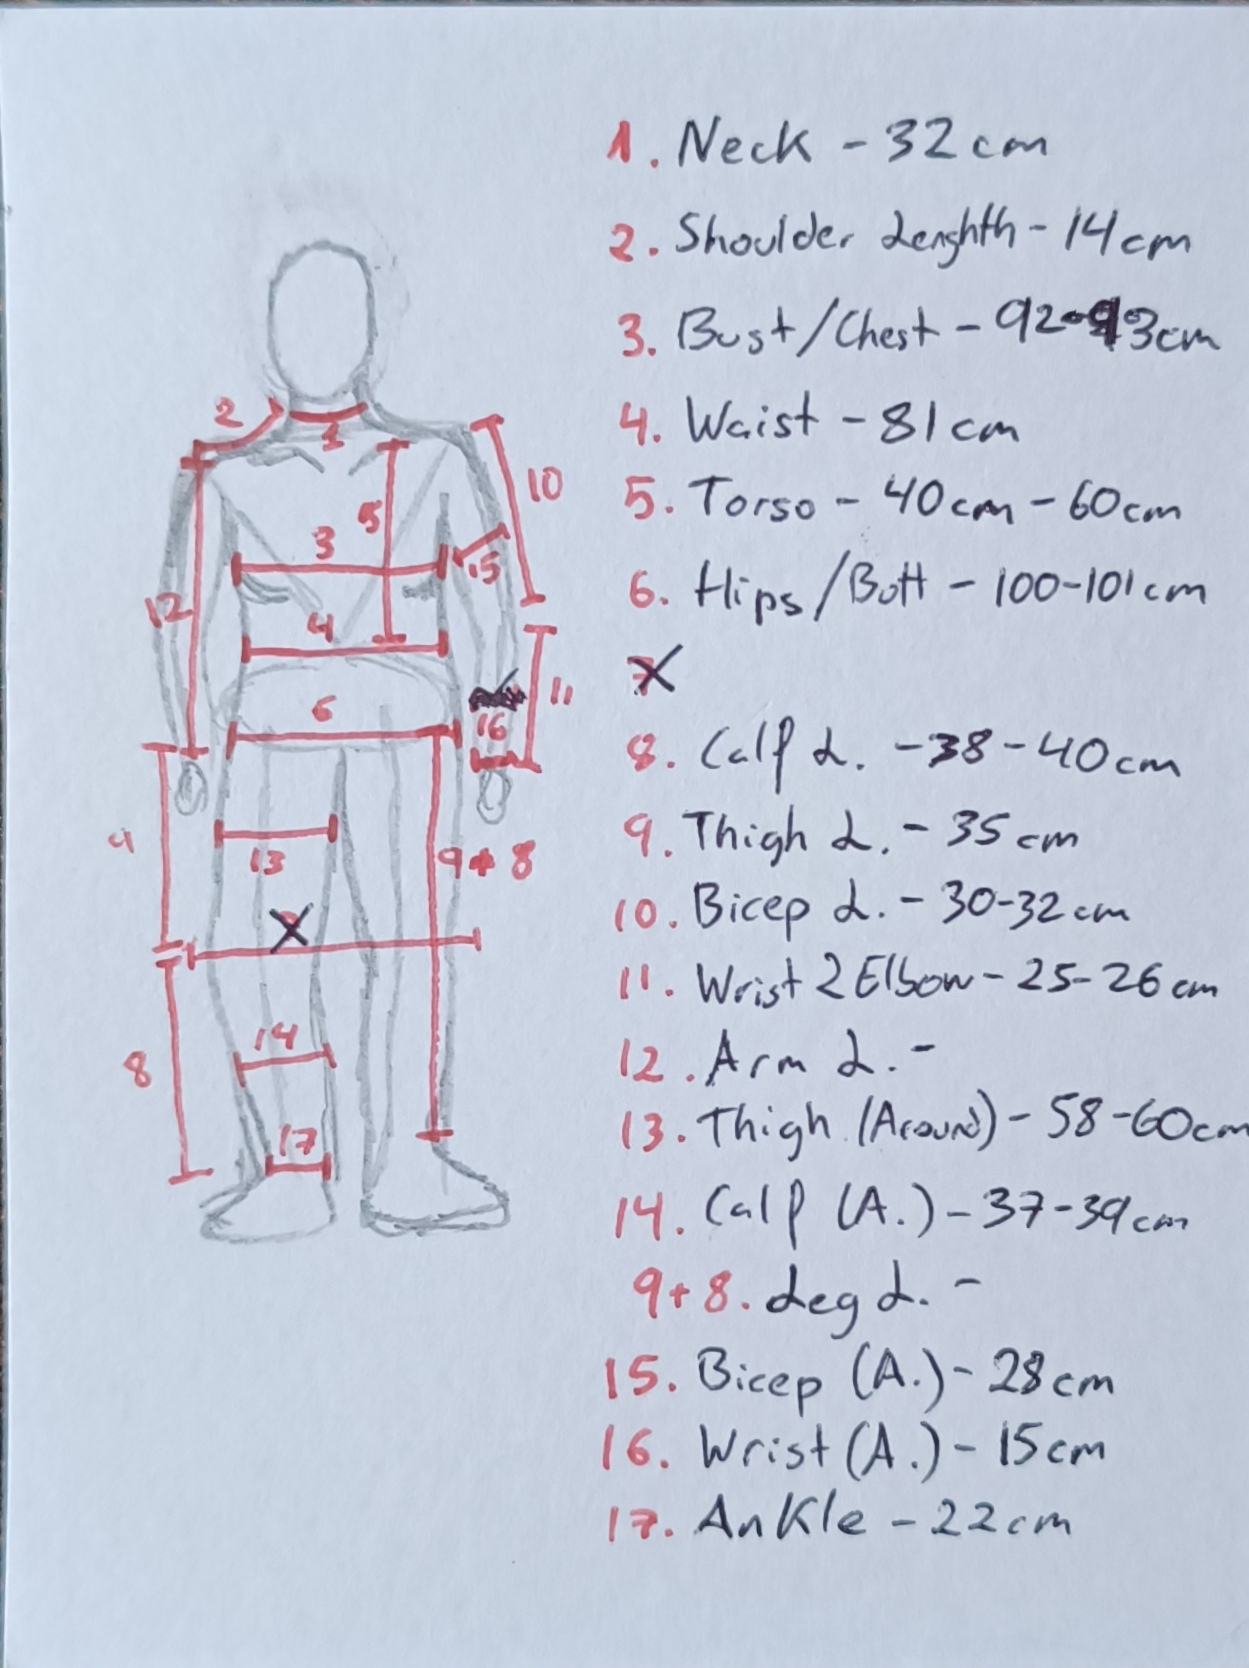 1. Neck - 32 cm
2. Shoulder Lenghth - 14 cm
3. Bust/Chest - 92-93cm
4. Waist - 81 cm
5. Torso - 40cm - 60cm
6. Hips/Butt - 100-101 cm
7
8. Calf L. - 38 - 40cm
9. Thigh L. - 35 cm
10. Bicep L. - 30-32 cm
11. Wrist 2 Elbow - 25-26 cm
12. Arm L. -
13. Thigh (Around) - 58-60cm
14. Calf (A.) - 37-39cm
9+8. Leg L. -
15. Bicep (A.) - 28cm
16. Wrist (A.) - 15cm
17. Ankle - 22cm
2
1
10
5
3
15
12
4
11
6
16
9
13
9+8
14
8
17